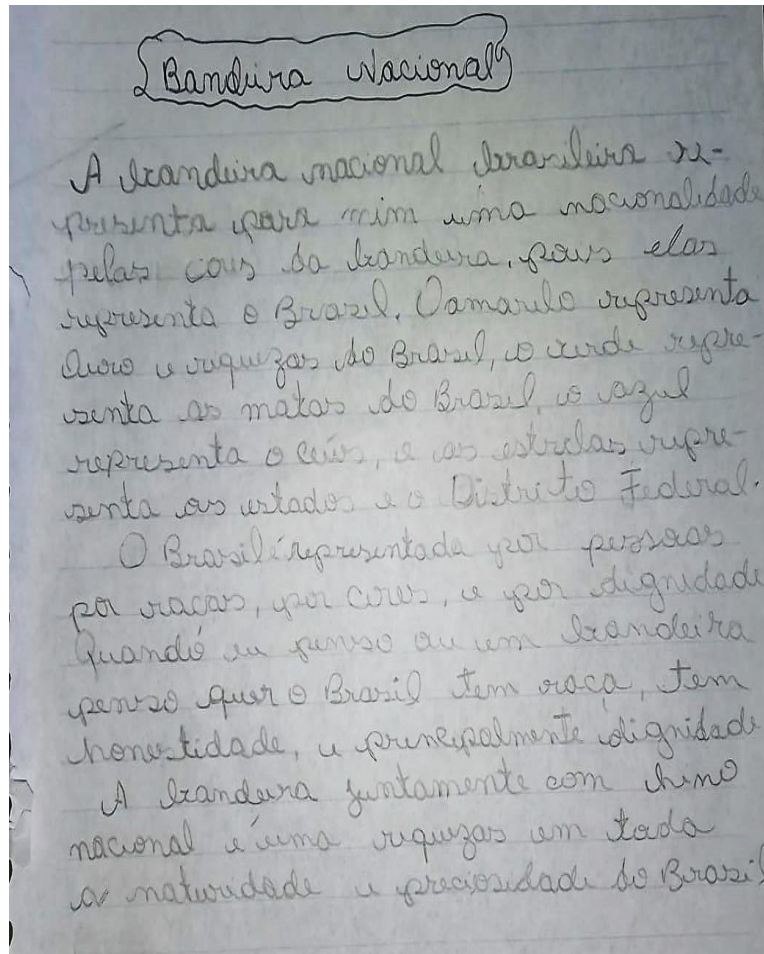 Bandeira Nacional
A bandeira nacional brasileira re-
presenta para mim uma nacionalidade
pelas cores da bandeira, pois elas
representa o Brasil. O amarelo representa
Ouro e riquezas do Brasil, o verde repre-
senta as matas do Brasil, o azul
representa o céus, e as estrelas repre-
senta os estados e o Distrito Federal.
O Brasil é representada por pessoas
por raças, por cores, e por dignidade
Quando eu penso ou em bandeira
penso quer o Brasil tem raça, tem
honestidade, e principalmente dignidade
A bandeira juntamente com hino
nacional é uma riquezas em toda
a naturidade e preciosidade do Brasil